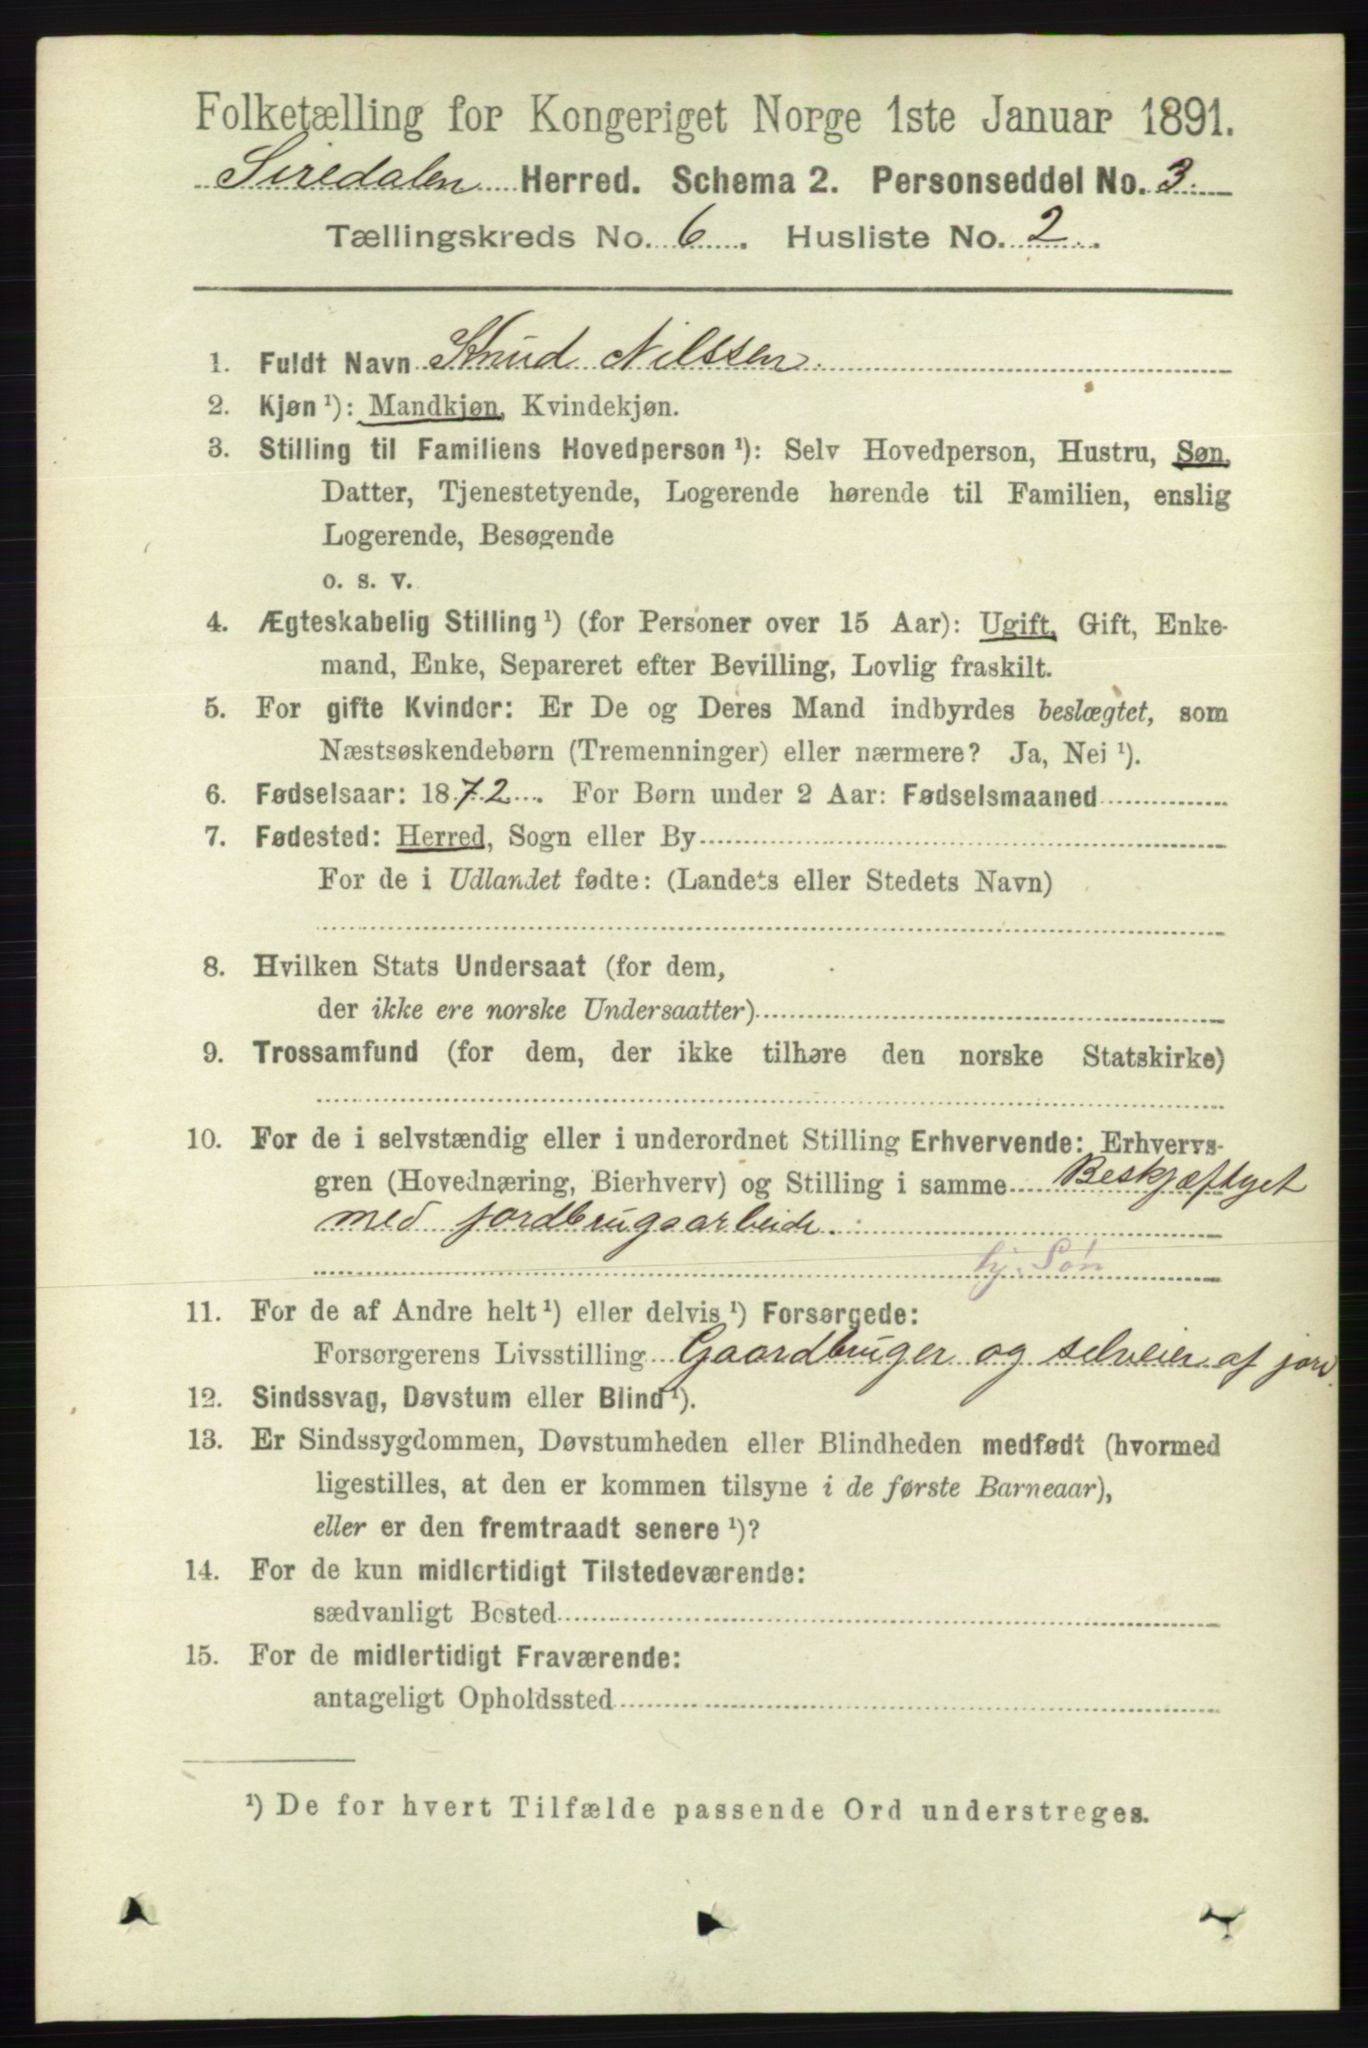 Folketælling for Kongeriget Norge 1ste Januar 1891.
Siredalen Herred. Schema 2. Personseddel No. 3.
Tællingskreds No. 6. Husliste No. 2.
1. Fuldt Navn Knud Nilssen
2. Kjøn ¹): Mandkjøn, Kvindekjøn.
3. Stilling til Familiens Hovedperson ¹): Selv Hovedperson, Hustru, Søn,
Datter, Tjenestetyende, Logerende hørende til Familien, enslig
Logerende, Besøgende
o. s. v.
4. Ægteskabelig Stilling ¹) (for Personer over 15 Aar): Ugift, Gift, Enke-
mand, Enke, Separeret efter Bevilling, Lovlig fraskilt.
5. For gifte Kvinder: Er De og Deres Mand indbyrdes beslægtet, som
Næstsøskendebørn (Tremenninger) eller nærmere? Ja, Nei ¹).
6. Fødselsaar: 1872. For Børn under 2 Aar: Fødselsmaaned
7. Fødested: Herred, Sogn eller By
For de i Udlandet fødte: (Landets eller Stedets Navn)
8. Hvilken Stats Undersaat (for dem,
der ikke ere norske Undersaatter)
9. Trossamfund (for dem, der ikke tilhøre den norske Statskirke)
10. For de i selvstændig eller i underordnet Stilling Erhvervende: Erhvervs-
gren (Hovednæring, Bierhverv) og Stilling i samme Beskjæftyget
med jordbrugsarbeide.
hj. Søn
11. For de af Andre helt ¹) eller delvis ¹) Forsørgede:
Forsørgerens Livsstilling Gaardbruger og selveier af jord.
12. Sindssvag, Døvstum eller Blind ¹).
13. Er Sindssygdommen, Døvstumheden eller Blindheden medfødt (hvormed
ligestilles, at den er kommen tilsyne i de første Barneaar),
eller er den fremtraadt senere ¹)?
14. For de kun midlertidigt Tilstedeværende:
sædvanligt Bosted
15. For de midlertidigt Fraværende:
antageligt Opholdssted
¹) De for hvert Tilfælde passende Ord understreges.